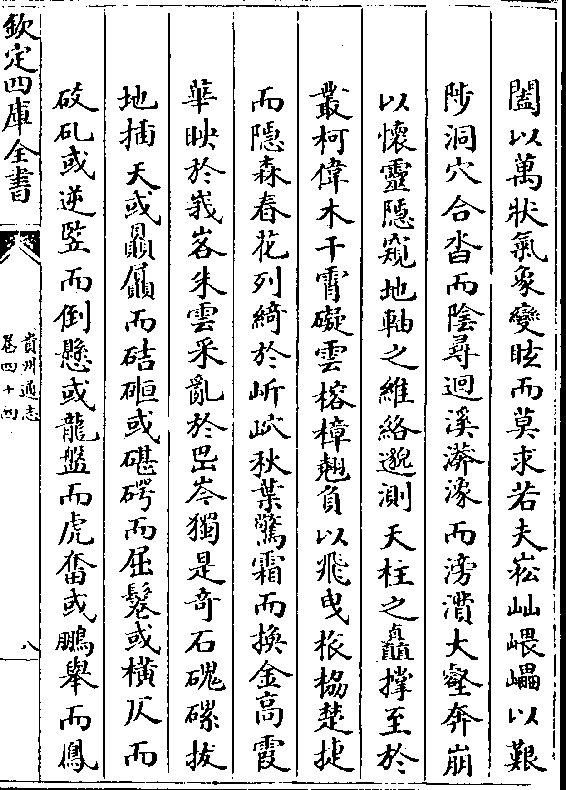 闔以萬狀氣象變眩而莫求若夫崧屾㟪㠥以艱
陟洞穴合沓而陰尋迴溪漭瀁而滂濆大壑奔崩
以懷靈隱窺地軸之維絡邈測天柱之矗撑至於
叢柯偉木干霄礙雲榕樟翹負以飛曳栝樅楚捷
而隱森春花列綺於岓𡶜秋葉驚霜而換金高霞
華映於峩峉朱雲采亂於嵒岺獨是竒石磈磥拔
地插天或贔屭而硈硱或碪碍而屈𩮰或横仄而
䂬矹或逆竪而倒懸或龍盤而虎奮或鵬舉而鳳
欽定四庫全書
貴州通志
卷四十四
八